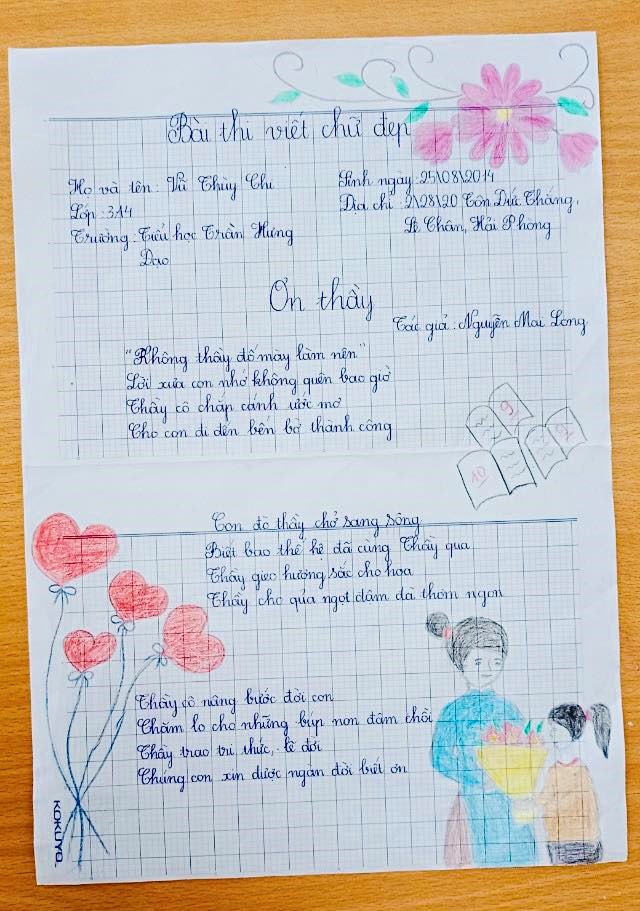 Bài thi viết chữ đẹp
Họ và tên: Vũ Thùy Chi
Sinh ngày: 25\08\2014
Lớp: 3A4
Địa chỉ: 2\28\20 Tôn Đức Thắng,
Lê Chân, Hải Phòng
Trường: Tiểu học Trần Hưng
Đạo
Ơn thầy
Tác giả: Nguyễn Mai Long
"Không thầy đố mày làm nên"
Lời xưa con nhớ không quên bao giờ
Thầy cô chắp cánh ước mơ
Cho con đi đến bến bờ thành công
9
9
10
Con đò thầy chở sang sông
Biết bao thế hệ đã cùng Thầy qua
Thầy gieo hương sắc cho hoa
Thầy cho qủa ngọt đâm đà thơm ngon
Thầy cô nâng bước đời con
Chăm lo cho những búp non đâm chồi
Thầy trao tri thức, lẽ đời
Chúng con xin được ngàn đời biết ơn
KOKUYO